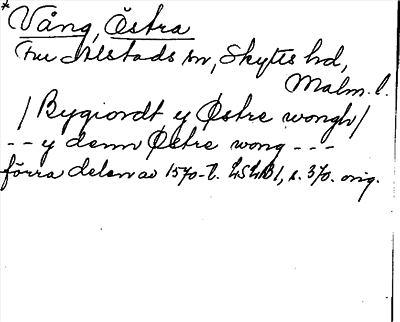 * Vång, Östra
Fru Alstads sn, Skytts hd,
Malm. l.
/ Bygiordt y Østre wongh /
- - y denn Østre wong - - -
förra delen av 1570-t. LSLB1, s. 370. orig.